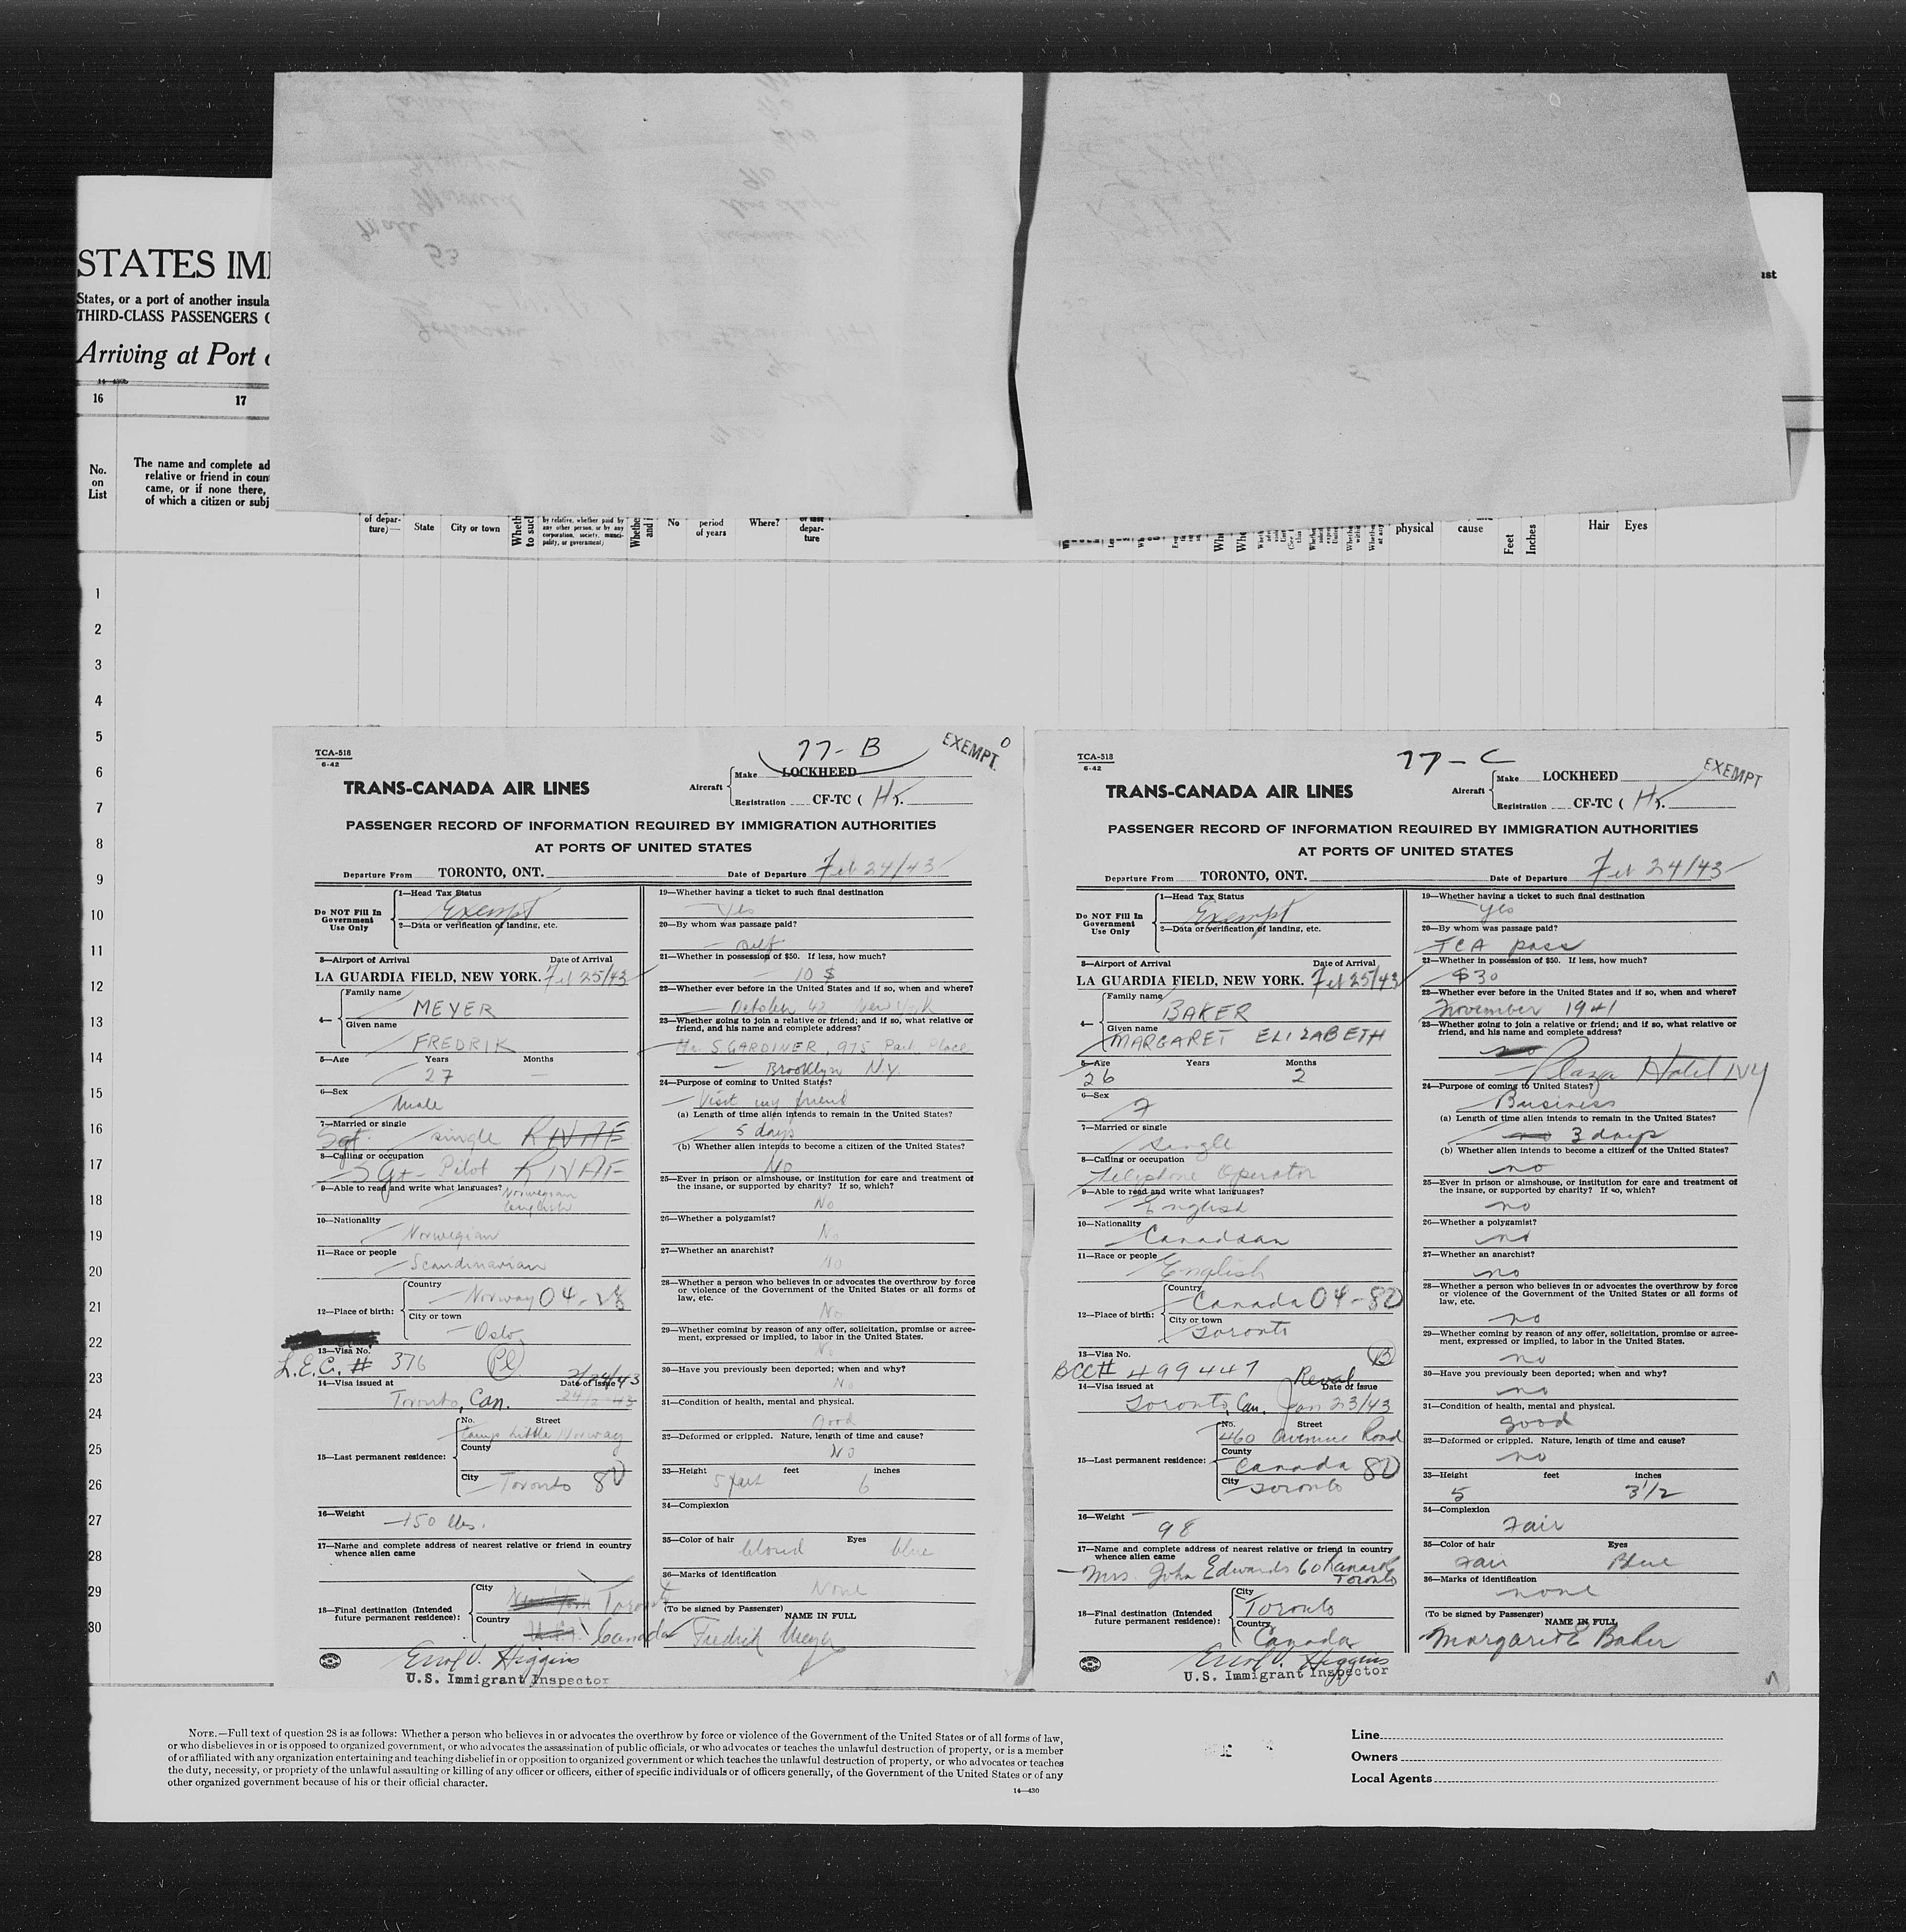 STATES IMI
States, or a port of another insula
THIRD-CLASS PASSENGERS
Arriving at Port
16 17
No. on List
The name and complete ad
relative or friend in coun
came, or if none there,
of which a citizen or subj
of depar-
ture)—
State
City or town
by relative, whether paid by
any other person, or by any
corporation, society, munici-
pality, or government)
No
period
of years
Where?
depar-
ture
physical
cause
Feet
Inches
Hair
Eyes
1
2
3
4
5
6
7
8
9
10
11
12
13
14
15
16
17
18
19
20
21
22
23
24
25
26
27
28
29
30
TCA-518
6-42
77-B
EXEMPT
TRANS-CANADA AIR LINES
Aircraft
Make LOCKHEED
Registration CF-TC ( H ).
PASSENGER RECORD OF INFORMATION REQUIRED BY IMMIGRATION AUTHORITIES
AT PORTS OF UNITED STATES
Departure From TORONTO, ONT. Date of Departure Feb 24/43
Do NOT Fill In
Government
Use Only
1—Head Tax Status
Exempt
2—Data or verification of landing, etc.
3—Airport of Arrival Date of Arrival
LA GUARDIA FIELD, NEW YORK. Feb 25/43
4—
Family name
MEYER
Given name
FREDRIK
5—Age Years Months
27 —
6—Sex
Male
7—Married or single
Sgt. single RNAF
8—Calling or occupation
Sgt - Pilot RNAF
9—Able to read and write what languages? Norwegian
English
10—Nationality
Norwegian
11—Race or people
Scandinavian
12—Place of birth:
Country
Norway 04-
City or town
Oslo
13—Visa No.
L.E.C. # 376
14—Visa issued at Date of issue
2/24/43
Toronto, Can. 24/2-43
15—Last permanent residence:
No. Street
Camp Little Norway
County
City
Toronto 80
16—Weight
150 lbs.
17—Name and complete address of nearest relative or friend in country
whence alien came
18—Final destination (Intended
future permanent residence):
City
Toronto
Country
U.S.A. Canada
Errol V. Higgins
U.S. Immigrant Inspector
19—Whether having a ticket to such final destination
Yes
20—By whom was passage paid?
self
21—Whether in possession of $50. If less, how much?
10 $
22—Whether ever before in the United States and if so, when and where?
October 42 New York
23—Whether going to join a relative or friend; and if so, what relative or
friend, and his name and complete address?
Mr. S. GARDINER, 975 Park Place
Brooklyn N.y.
24—Purpose of coming to United States?
Visit my friend
(a) Length of time alien intends to remain in the United States?
5 days
(b) Whether alien intends to become a citizen of the United States?
No
25—Ever in prison or almshouse, or institution for care and treatment of
the insane, or supported by charity? If so, which?
No
26—Whether a polygamist?
No
27—Whether an anarchist?
No
28—Whether a person who believes in or advocates the overthrow by force
or violence of the Government of the United States or all forms of
law, etc.
No
29—Whether coming by reason of any offer, solicitation, promise or agree-
ment, expressed or implied, to labor in the United States.
No
30—Have you previously been deported; when and why?
No
31—Condition of health, mental and physical.
Good
32—Deformed or crippled. Nature, length of time and cause?
No
33—Height feet inches
5 feet 6
34—Complexion
35—Color of hair Eyes
blond blue
36—Marks of identification
None
(To be signed by Passenger)
NAME IN FULL
Fredrik Meyer
TCA-518
6-42
77-C
EXEMPT
TRANS-CANADA AIR LINES
Aircraft
Make LOCKHEED
Registration CF-TC ( H ).
PASSENGER RECORD OF INFORMATION REQUIRED BY IMMIGRATION AUTHORITIES
AT PORTS OF UNITED STATES
Departure From TORONTO, ONT. Date of Departure Feb 24/43
Do NOT Fill In
Government
Use Only
1—Head Tax Status
Exempt
2—Data or verification of landing, etc.
3—Airport of Arrival Date of Arrival
LA GUARDIA FIELD, NEW YORK. Feb 25/43
4—
Family name
BAKER
Given name
MARGARET ELIZABETH
5—Age Years Months
26 2
6—Sex
F
7—Married or single
Single
8—Calling or occupation
Telephone Operator
9—Able to read and write what languages?
English
10—Nationality
Canadian
11—Race or people
English
12—Place of birth:
Country
Canada 04-80
City or town
Toronto
13—Visa No.
B
BCC# 499447
14—Visa issued at Date of issue
Reval
Toronto, Can. Jan 23/43
15—Last permanent residence:
No. Street
460 Avenue Road
County
Canada 80
City
Toronto
16—Weight
98
17—Name and complete address of nearest relative or friend in country
whence alien came
Mrs. John Edwards 60
Toronto
18—Final destination (Intended
future permanent residence):
City
Toronto
Country
Canada
Errol V. Higgins
U.S. Immigrant Inspector
19—Whether having a ticket to such final destination
yes
20—By whom was passage paid?
TCA pass
21—Whether in possession of $50. If less, how much?
$30
22—Whether ever before in the United States and if so, when and where?
November 1941
23—Whether going to join a relative or friend; and if so, what relative or
friend, and his name and complete address?
no
Plaza Hotel NY
24—Purpose of coming to United States?
Business
(a) Length of time alien intends to remain in the United States?
no 3 days
(b) Whether alien intends to become a citizen of the United States?
no
25—Ever in prison or almshouse, or institution for care and treatment of
the insane, or supported by charity? If so, which?
no
26—Whether a polygamist?
no
27—Whether an anarchist?
no
28—Whether a person who believes in or advocates the overthrow by force
or violence of the Government of the United States or all forms of
law, etc.
no
29—Whether coming by reason of any offer, solicitation, promise or agree-
ment, expressed or implied, to labor in the United States.
no
30—Have you previously been deported; when and why?
no
31—Condition of health, mental and physical.
good
32—Deformed or crippled. Nature, length of time and cause?
no
33—Height feet inches
5 3 1/2
34—Complexion
Fair
35—Color of hair Eyes
Fair Blue
36—Marks of identification
none
(To be signed by Passenger)
NAME IN FULL
Margaret E Baker
NOTE.—Full text of question 28 is as follows: Whether a person who believes in or advocates the overthrow by force or violence of the Government of the United States or of all forms of law,
or who disbelieves in or is opposed to organized government, or who advocates the assassination of public officials, or who advocates or teaches the unlawful destruction of property, or is a member
of or affiliated with any organization entertaining and teaching disbelief in or opposition to organized government or which teaches the unlawful destruction of property, or who advocates or teaches
the duty, necessity, or propriety of the unlawful assaulting or killing of any officer or officers, either of specific individuals or of officers generally, of the Government of the United States or of any
other organized government because of his or their official character.
14—430
Line
Owners
Local Agents